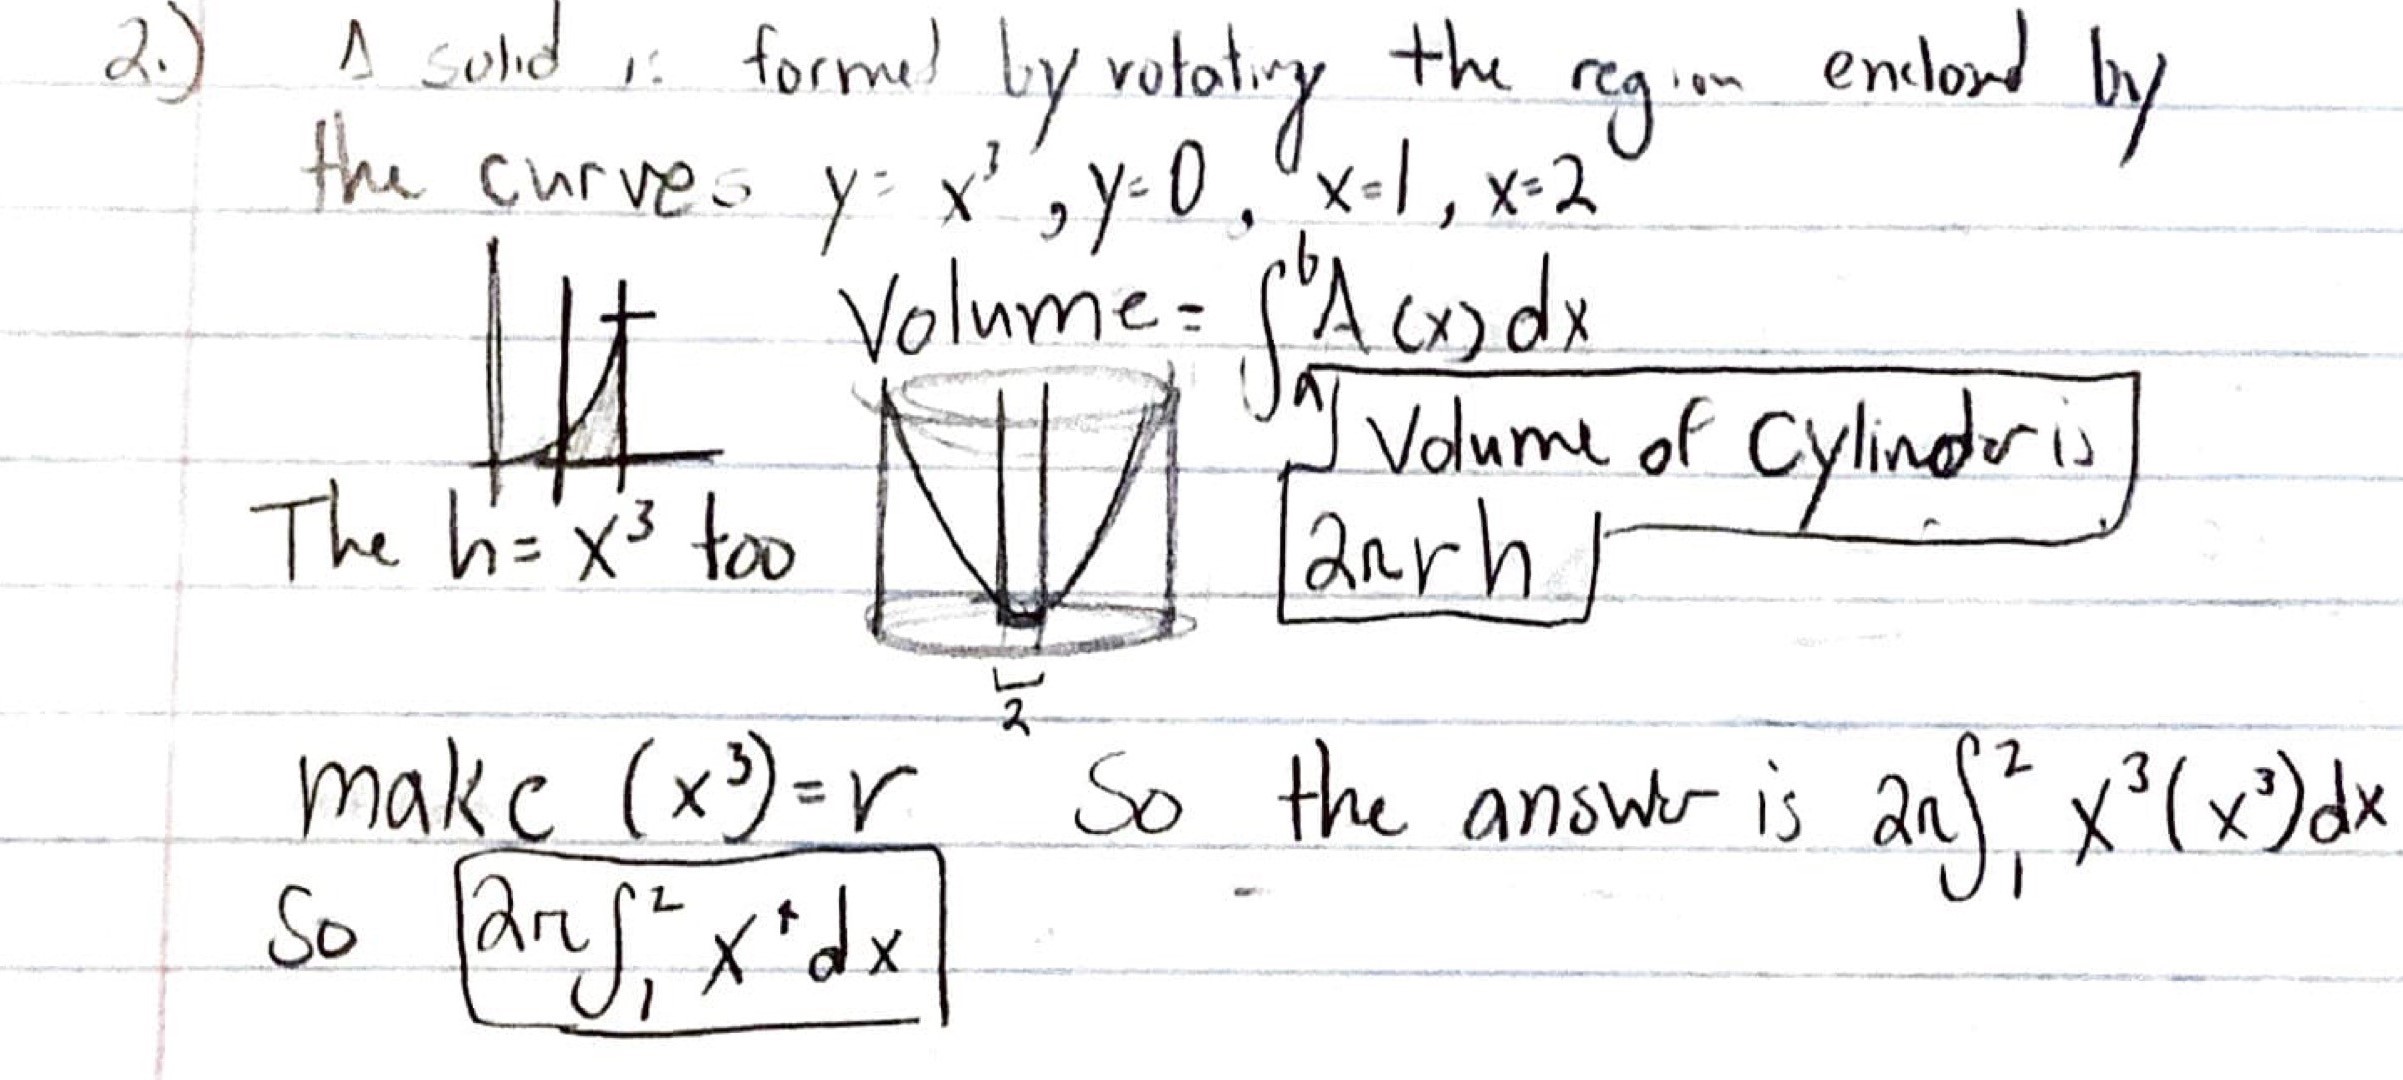 2.) A solid is formed by rotating the region enclosed by
the curves y = x³, y=0, x=1, x=2
Volume = ∫ₐᵇ A(x) dx
Volume of Cylinder is
2πrh
The h = x³ too
2
make (x³) = r So the answer is 2π∫₁² x³(x³)dx
So 2π∫₁² x dx